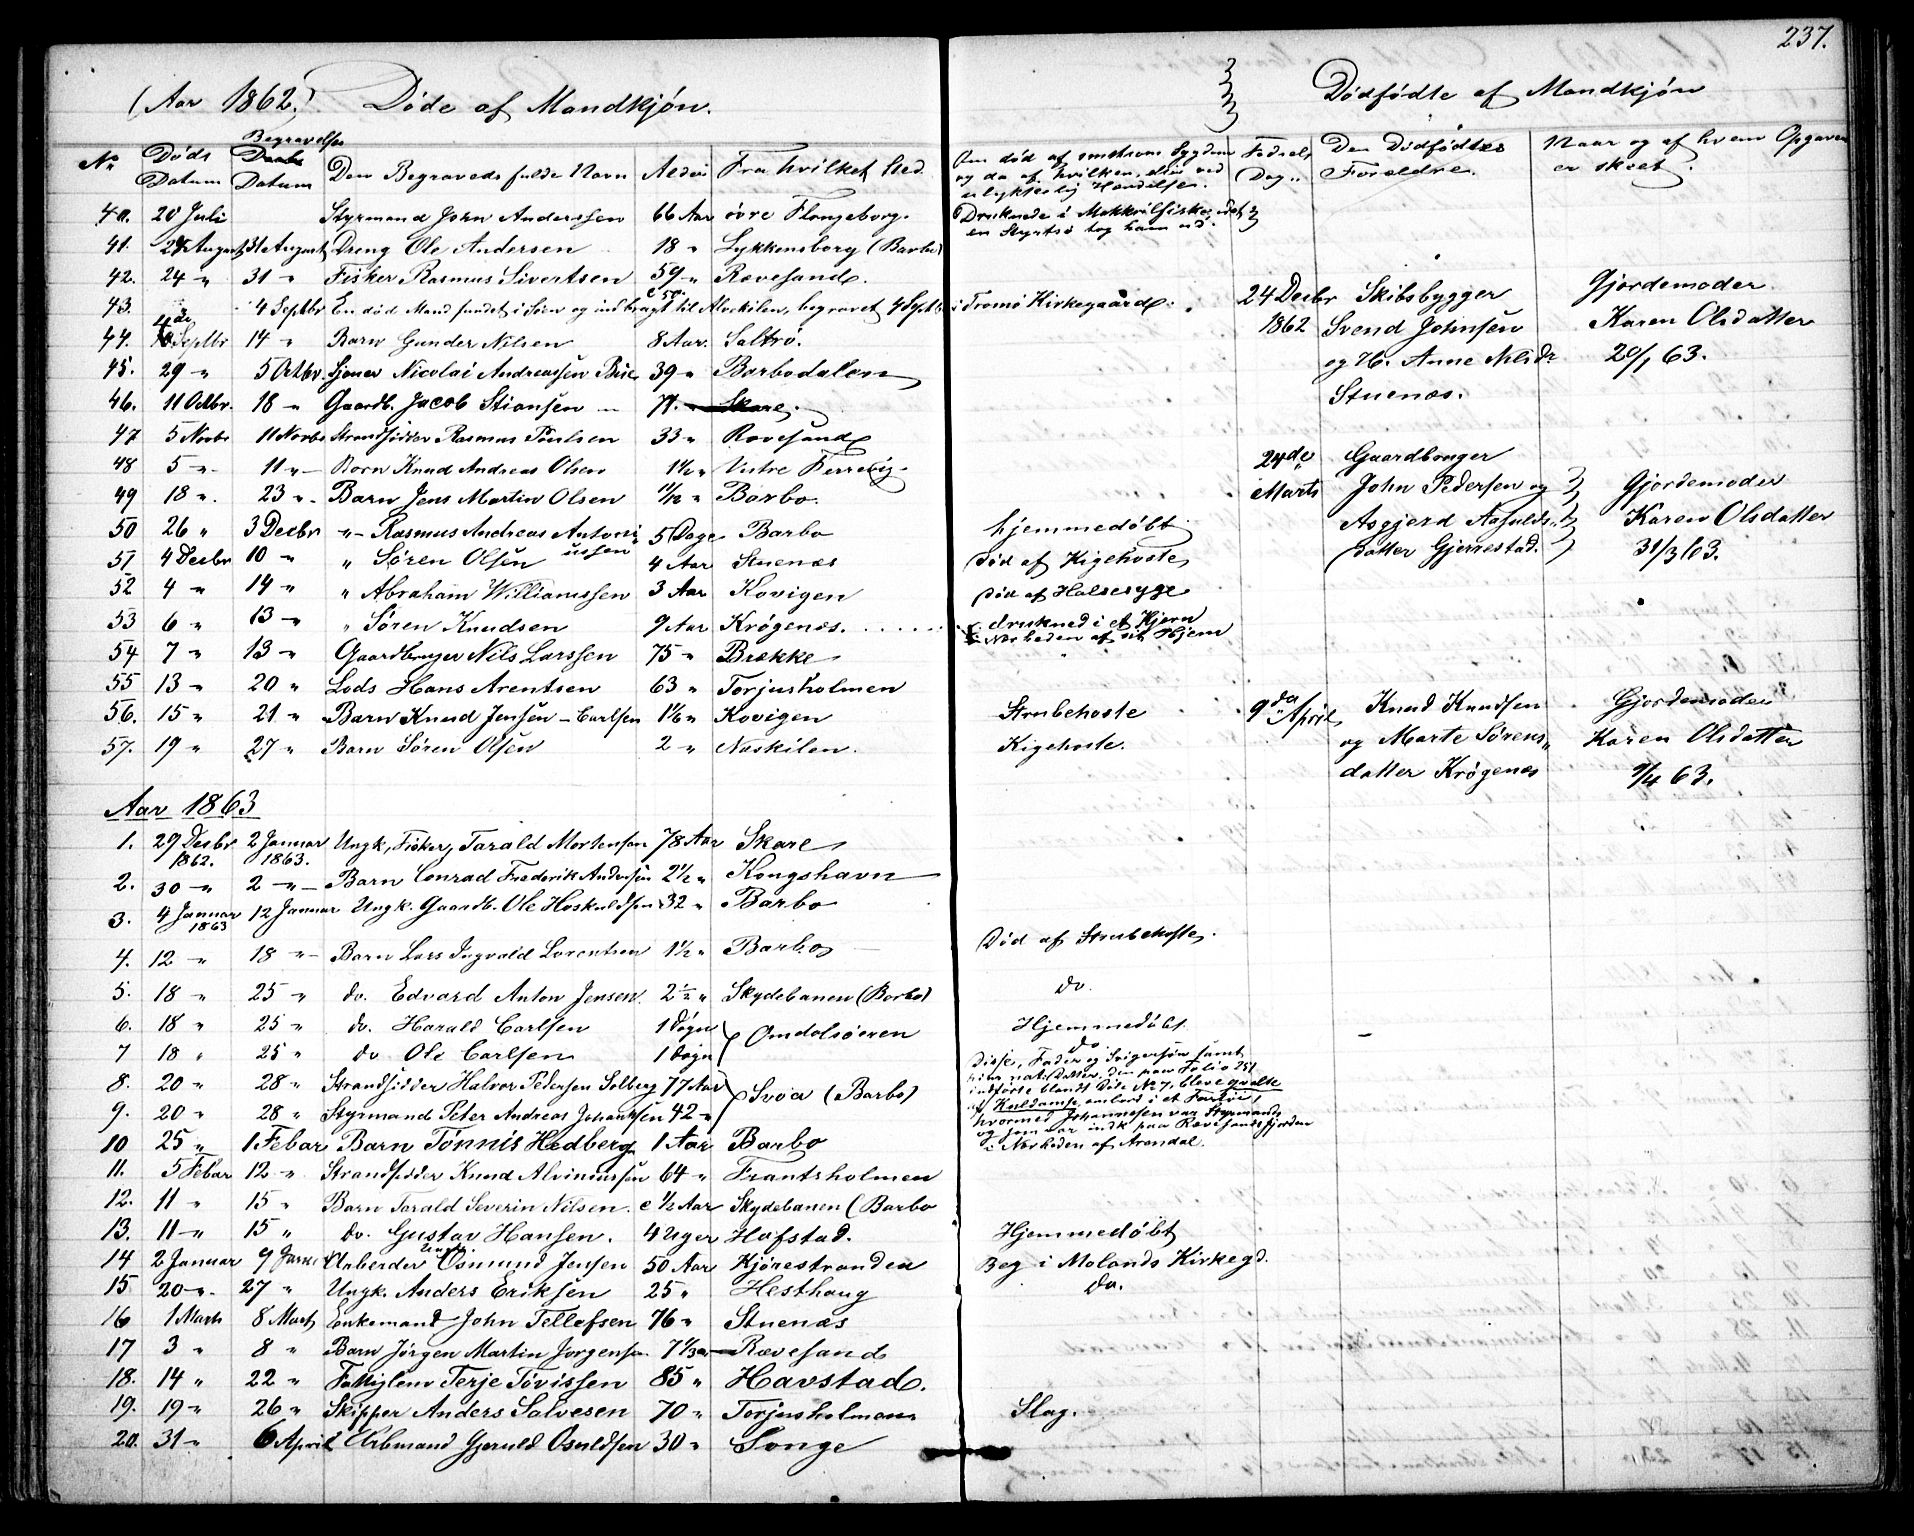 237.
(Aar 1862.) Døde af Mandkjøn.
Dødfødte af Mandkjøn
No Døds Datum Begravelses Datum Den Begravedes fulde Navn Alder Fra hvilket Sted. Om død af smitsom Sygdom og da af hvilken, eller ved ulykkelig Hændelse. Fødsels Dag Den Dødfødtes Forældre. Naar og af hvem Opgaven er skeet.
40. 20 Juli Styrmand John Anderssen 66 Aar øvre Flangeborg. Druknede i Makkrilfiske, idet en Styrtsø tog ham ud.
41. August 31te August Dreng Ole Andersen 18 " Lykkensborg (Barbo)
42. 24 " 31 " Fisker Rasmus Sivertsen 59 " Rævesand
43. 4 Septbr En død Mand fundet i Søen og indbragt til Alvekilen, begravet 4 Septb i Tromø Kirkegaard.
44. Septbr 14 " Barn Gunder Nilsen 8 Aar. Saltrø.
45. 29 " 5 Octbr. Nicolai Andreassen 39 " Barbodalen
46. 11 Octbr. 18 " Gaardb. Jacob Stiansen 71. " Skare.
47 5 Novbr 11 Novbr Strandsidder Rasmus Poulsen 33 " Rævesand
48 5 " 11 " Barn Knud Andreas Olsen 1½ " Vestre
49 18 " 23 " Barn Jens Martin Olsen 11/12 " Barbo.
50 26 " 3 Decbr " Rasmus Andreas Antoniussen 5 Dage Barbo hjemmedøbt
51 4 Decbr 10 " " Søren Olsen 4 Aar Stuenæs Død af Kighoste
52 4 " 14 " " Abraham Williamssen 3 Aar Kovigen Død af Halsesyge
53 6 " 13 " " Søren Knudsen 9 Aar Krøgenæs. drukned i et Kjern i Nærheden af sit Hjem
54 7 " 13 " Gaardbruger Nils Larssen 75 " Brække
55 13 " 20 " Lods Hans Arentsen 63 " Torjusholmen
56. 15 " 21 " Barn Knud Jensen-Carlsen 1 1/6 " Kovigen Strubehoste
57. 19 " 27 " Barn Søren Olsen 2 " Naskilen. Kighoste.
24 Decbr 1862 Skibsbygger Svend Johnsen og H. Anne Nilsdr Stuenæs. Gjordemoder Karen Olsdatter 20/1 63.
24de Marts Gaardbruger John Pedersen og Asgjerd Aasulds datter Gjerrestad. Gjordemoder Karen Olsdatter 31/3 63.
9da April Knud Knudsen og Marte Sørens datter Krøgenæs Gjordemoder Karen Olsdatter 9/4 63.
Aar 1863
1. 29 Decbr 1862. 2 Januar 1863. Ungk, Fisker, Tarald Mortensen 78 Aar Skare
2. 30 " 2 " Barn Conrad Frederik Andersen 2½ " Kongshavn
3. 4 Januar 1863 12 Januar Ungk. Gaardb. Ole Hoskuldsen 32 " Barbo
4. 12 " 18 " Barn Lars Ingvald Lorentsen 1½ " Barbo Død af Strubehoste.
5. 18 " 25 " do. Edvard Anton Jensen 2½ " Skydebanen (Barbo) do.
6. 18 " 25 " do. Harald Carlsen 1 Døgn Omdalsøeren Hjemmedøbt
7 18 " 25 " do Ole Carlsen 1 Døgn do
8. 20 " 28 " Strandsidder Halvor Pedersen Solberg 77 Aar Svoa (Barbo)
9. 20 " 28 " Styrmand Peter Andreas Johannsen 42 "
Disse, Fader og Svigersøn samt Datter, den paa Folio 251 indførte blandt Døde No 7, bleve qvalte af Kuldamse ombord i et Fartøi, hvormed Johannesen var Styrmand og som var indk paa Rævesandsfjorden i Nærheden af Arendal.
10 25 " 1 Febar Barn Tønnis Hedberg 1 Aar Barbo
11. 5 Febar 12 " Strandsidder Knud Alviniussen 64 " Frantsholmen
12. 11 " 15 " Barn Tarald Severin Nilsen. c ½ Aar Skydebanen (Barbo
13. 11 " 15 " do. Gustav Hansen. 4 Uger Hafstad. Hjemmedøbt
14 2 Januar 9 Januar Arberder Osmund Jensen 50 Aar Kjørestranden Beg i Molands Kirkegd.
15 20 " 27 " Ungk. Anders Eriksen 25 " Hesthaug do.
16 1 Marts 8 Marts Enkemand John Tellefsen 76 " Stuenæs
17 3 " 8 " Barn Jørgen Martin Jorgensen 7 1/3 " Rævesand
18. 14 " 22 " Fattiglem Terje Tovissen 85 " Havstad.
19. 19 " 26 " Skipper Anders Salvesen 70 " Torjusholmen Slag.
20. 31 " 6 April Arbmand Gjeruld Osuldsen 30 " Songe